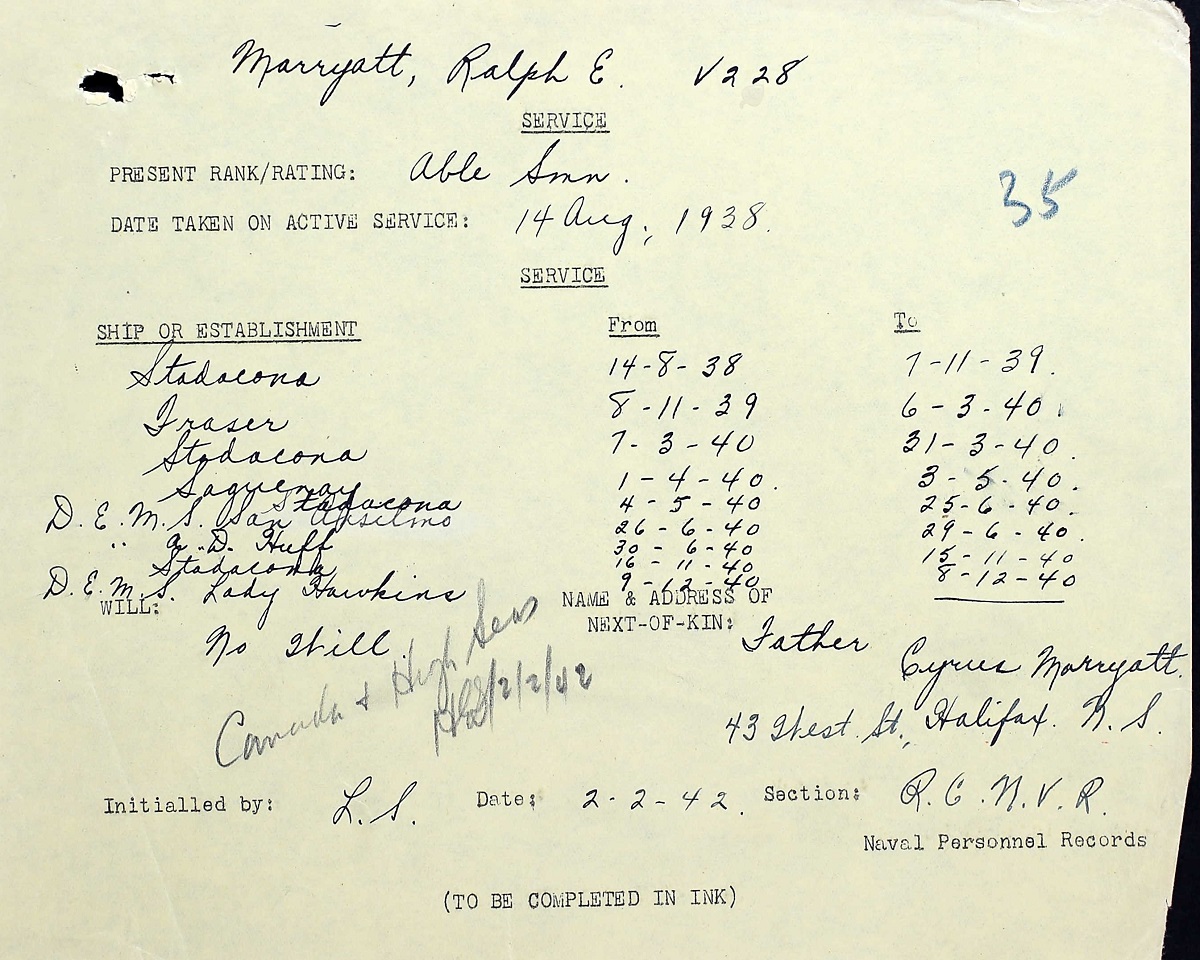 Marryatt, Ralph E. V228
SERVICE
PRESENT RANK/RATING: Able Smn.
35
DATE TAKEN ON ACTIVE SERVICE: 14 Aug, 1938.
SERVICE
SHIP OR ESTABLISHMENT From To
Stadacona 14-8-38 7-11-39.
Fraser 8-11-39 6-3-40
Stadacona 7-3-40 31-3-40.
Saguenay 1-4-40. 3-5-40.
Stadacona 4-5-40 25-6-40.
D.E.M.S. San Anselmo 26-6-40 29-6-40.
" A.D. Huff 30-6-40 15-11-40
Stadacona 16-11-40 8-12-40
D.E.M.S. Lady Hawkins 9-12-40
WILL: NAME & ADDRESS OF
NEXT-OF-KIN:
No Will. Father
Cyrus Marryatt.
43 West St., Halifax. N.S.
Canada & High Seas
2/2/42
Initialled by: L.S. Date: 2-2-42. Section: R.C.N.V.R.
Naval Personnel Records
(TO BE COMPLETED IN INK)